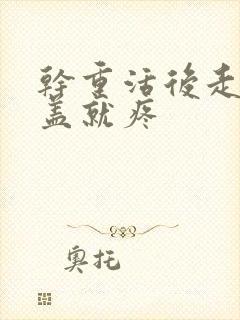 幹重活後走
盖就疼
奧托